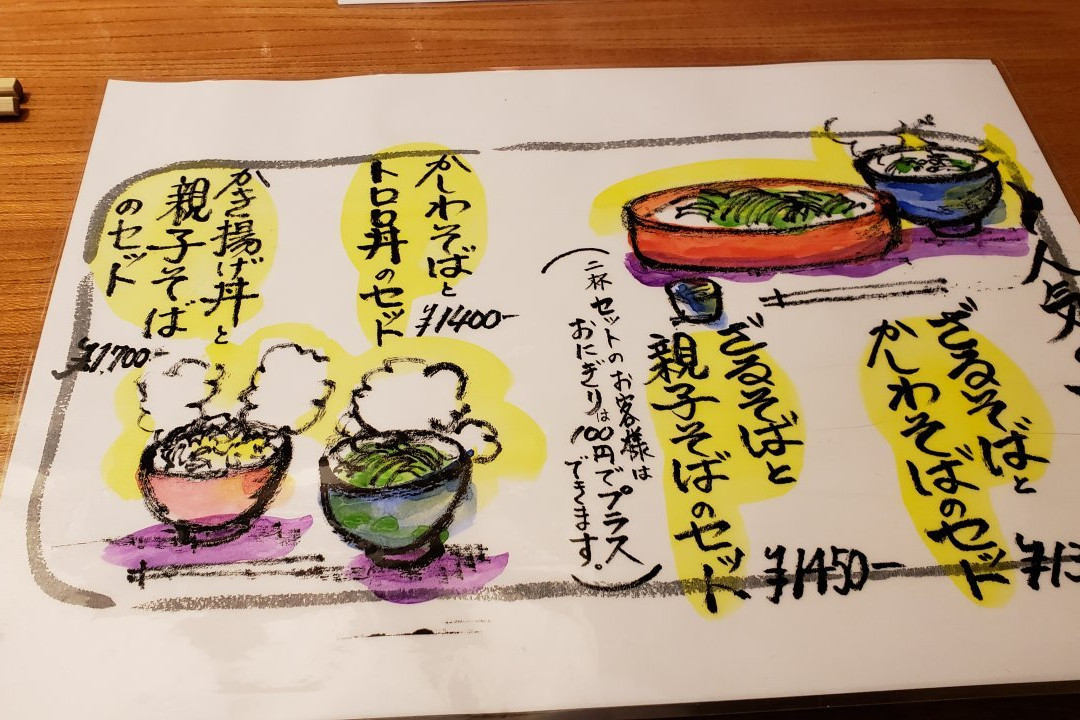 人気
ざるそばと
かしわそばのセット
¥13
ざるそばと
親子そばのセット
¥1450-
(二杯セットのお客様は
おにぎりは100円でプラス
できます。)
かしわそばと
トロロ丼のセット
¥1400-
かき揚げ丼と
親子そば
のセット
¥1,700-